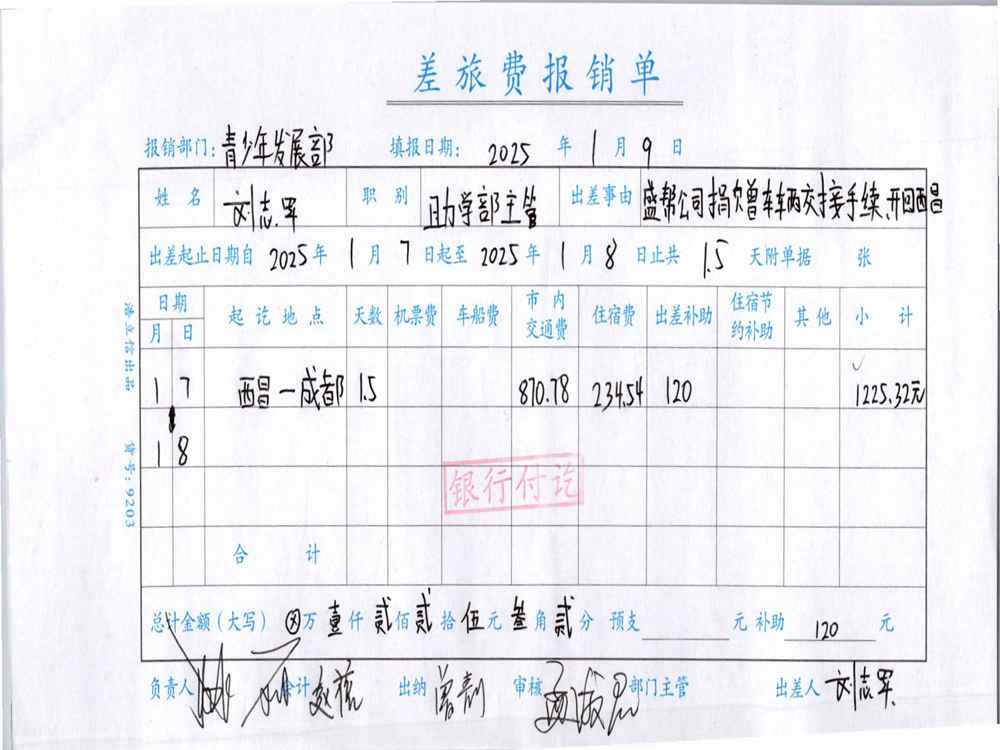 差旅费报销单
报销部门：青少年发展部 填报日期： 2025 年 1 月 9 日
姓名 刘志军 职别 助学部主管 出差事由 盛帮公司捐赠车辆交接手续，开回西昌
出差起止日期自 2025 年 1 月 7 日起至 2025 年 1 月 8 日止共 1.5 天附单据 张
日期 起讫地点 天数 机票费 车船费 市内交通费 住宿费 出差补助 住宿节约补助 其他 小计
月 日
1 7 西昌—成都 1.5 870.78 234.54 120 1225.32元
1 8
银行付讫
合计
总计金额（大写） ⊗万 壹仟 贰佰 贰拾 伍元 叁角 贰分 预支 元 补助 120 元
负责人 会计 出纳 曾 审核 部门主管 出差人 刘志军
浩立信出品
货号：9203